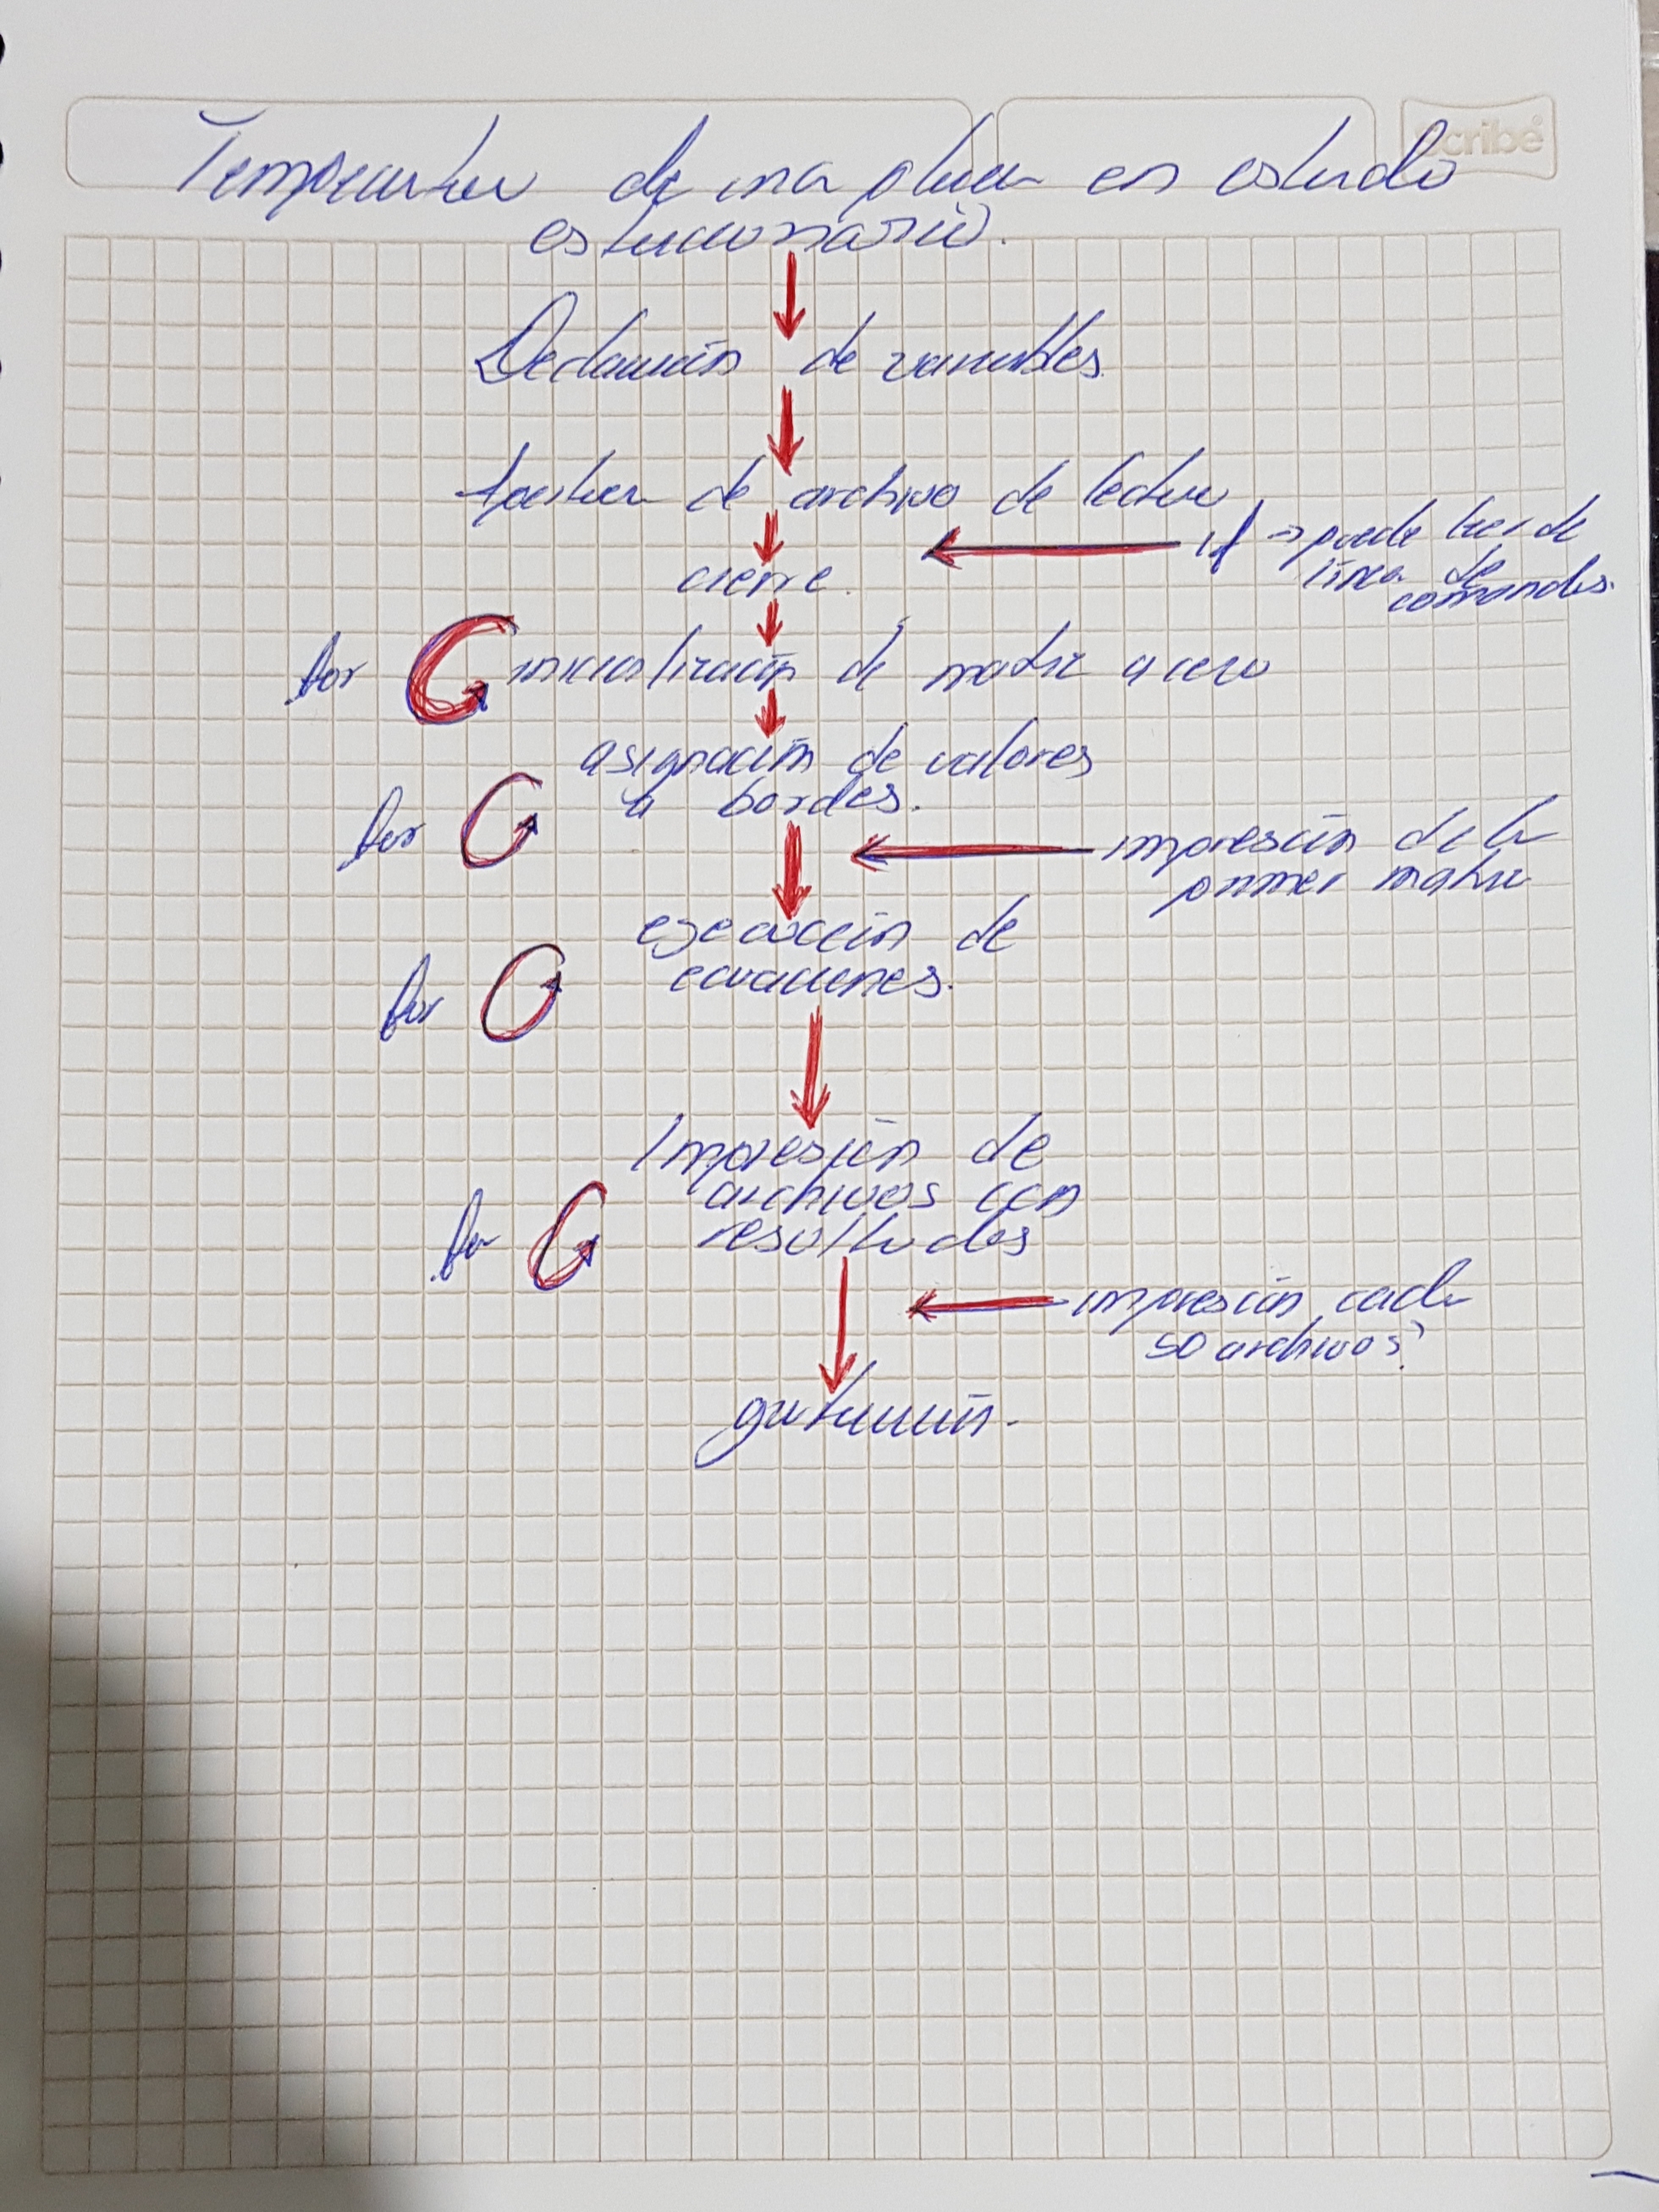 Temperatura de una placa en estado
estacionario.
Declaración de variables.
Apertura de archivo de lectura
if → puede leer de
línea de
comandos.
cierre.
for inicialización de matriz a cero
asignación de valores
a bordes.
for
impresión de la
primer matriz
ejecución de
ecuaciones.
for
Impresión de
archivos con
resultados
for
impresión cada
50 archivos?
graficación.
scribe